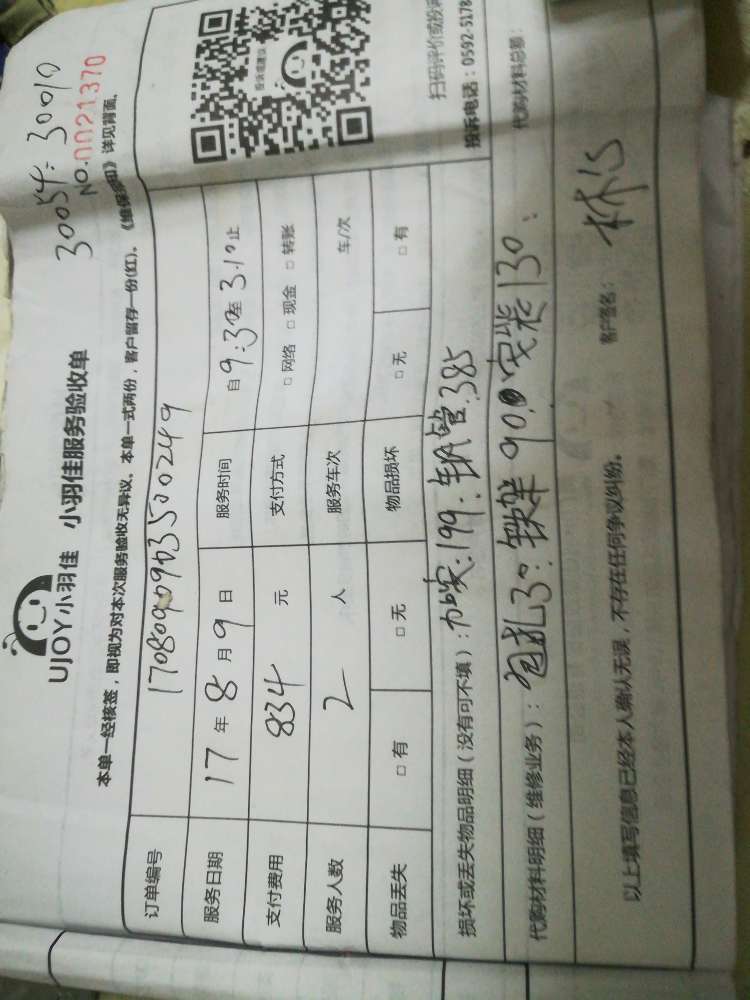 30054: 30010
UJOY小羽佳 小羽佳服务验收单
NO.0021370
本单一经核签，即视为对本次服务验收无异议。本单一式两份，客户留存一份(红)。《维保须知》详见背面。
订单编号 1708090903500249
服务日期 17年8月9日 服务时间 自9:30至3:10止
支付费用 834元 支付方式 □网络 □现金 □转账
服务人数 2人 服务车次 车/次
物品丢失 □有 □无 物品损坏 □无 □有
投诉或建议
扫码评价或投诉
投诉电话：0592-5178
损坏或丢失物品明细（没有可不填）：加安.199.钢管.385
代购材料明细（维修业务）：包扎30:铁架90.安装130: 代购材料总额：
以上填写信息已经本人确认无误，不存在任何争议纠纷。 客户签名：